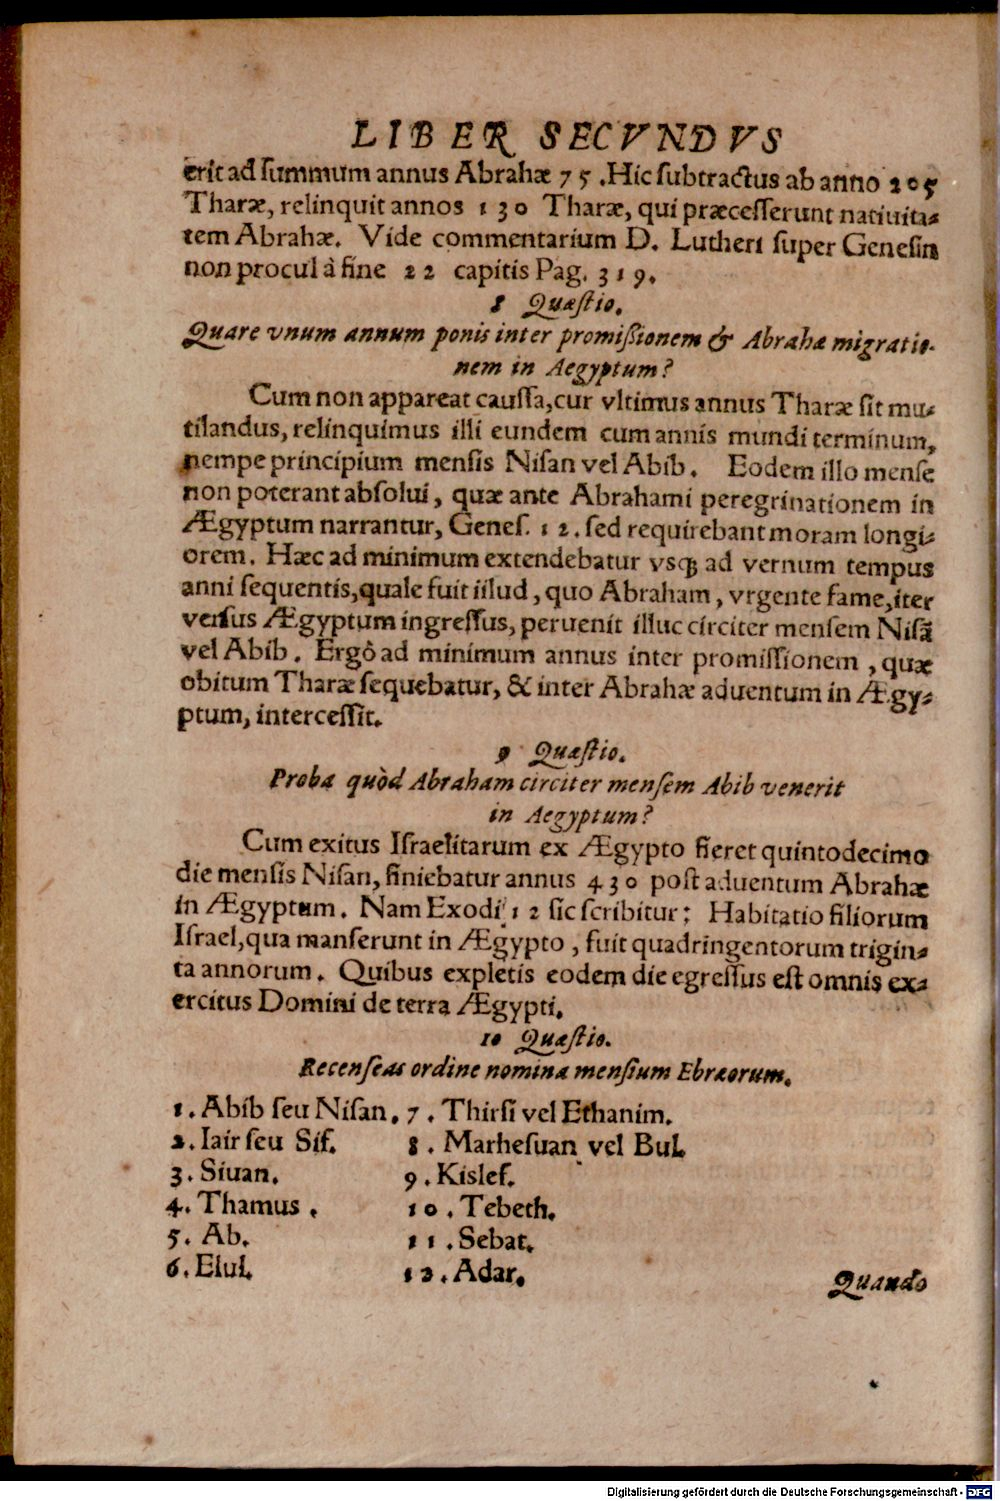 LIBER SECVNDVS
erit ad ſummum annus Abrahæ 75. Hic ſubtractus ab anno 205
Tharæ, relinquit annos 130 Tharæ, qui præceſſerunt natiuita-
tem Abrahæ. Vide commentarium D. Lutheri ſuper Geneſin
non procul à fine 22 capitis Pag. 319.
8 Quæſtio.
Quare vnum annum ponis inter promißionem & Abrahæ migratio-
nem in Aegyptum?
Cum non appareat cauſſa, cur vltimus annus Tharæ ſit mu-
tilandus, relinquimus illi eundem cum annis mundi terminum,
nempe principium menſis Niſan vel Abib. Eodem illo menſe
non poterant abſolui, quæ ante Abrahami peregrinationem in
Ægyptum narrantur, Geneſ. 12. ſed requirebant moram longi-
orem. Hæc ad minimum extendebatur vsq; ad vernum tempus
anni ſequentis, quale fuit illud, quo Abraham, vrgente fame, iter
verſus Ægyptum ingreſſus, peruenit illuc circiter menſem Niſã
vel Abib. Ergò ad minimum annus inter promiſſionem, quæ
obitum Tharæ ſequebatur, & inter Abrahæ aduentum in Ægy-
ptum, interceſſit.
9 Quæſtio.
Proba quòd Abraham circiter menſem Abib venerit
in Aegyptum?
Cum exitus Iſraelitarum ex Ægypto fieret quintodecimo
die menſis Niſan, finiebatur annus 430 poſt aduentum Abrahæ
in Ægyptum. Nam Exodi 12 ſic ſcribitur: Habitatio filiorum
Iſrael, qua manſerunt in Ægypto, fuit quadringentorum trigin-
ta annorum. Quibus expletis eodem die egreſſus eſt omnis ex-
ercitus Domini de terra Ægypti.
10 Quæſtio.
Recenſeas ordine nomina menſium Ebræorum.
1. Abib ſeu Niſan. 7. Thirſi vel Ethanim.
2. Iair ſeu Sif. 8. Marheſuan vel Bul.
3. Siuan. 9. Kislef.
4. Thamus. 10. Tebeth.
5. Ab. 11. Sebat.
6. Elul. 12. Adar.
Quando
Digitalisierung gefördert durch die Deutsche Forschungsgemeinschaft - DFG